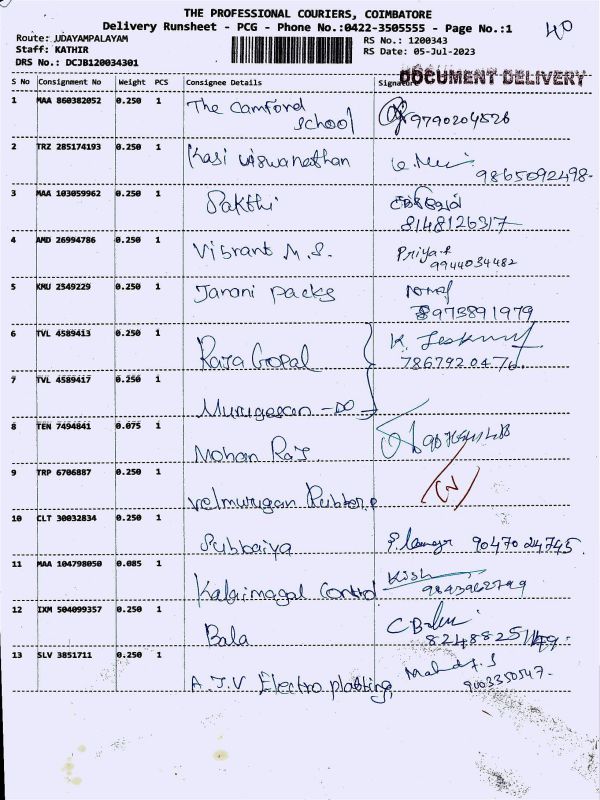 THE PROFESSIONAL COURIERS, COIMBATORE
40
Delivery Runsheet - PCG - Phone No.:0422-3505555 - Page No.:1
Route: UDAYAMPALAYAM
RS No.: 1200343
Staff: KATHIR
RS Date: 05-Jul-2023
DRS No.: DCJB120034301
DOCUMENT DELIVERY
S No Consignment No Weight PCS Consignee Details Signature
1 MAA 860382052 0.250 1 The Camford School 9790204526
2 TRZ 285174193 0.250 1 Kasi viswanathan 9865092498-
3 MAA 103059962 0.250 1 Sakthi 8148126317
4 AMD 26994786 0.250 1 Vibrant M.S. Priya 9944034482
5 KMU 2549229 0.250 1 Janani packs 8973891979
6 TVL 4589413 0.250 1 Raja Gopal K. 7867920476.
7 TVL 4589417 0.250 1 Murugesan -DO
8 TEN 7494841 0.075 1 Mohan Raj
9 TRP 6706887 0.250 1 velmurugan Rubber
10 CLT 30032834 0.250 1 Subbaiya 9047024745.
11 MAA 104798050 0.085 1 Kalaimagal Control Kish
12 IXM 504099357 0.250 1 Bala C Bala
13 SLV 3851711 0.250 1 A.J.V Electro platting, 9003350547.